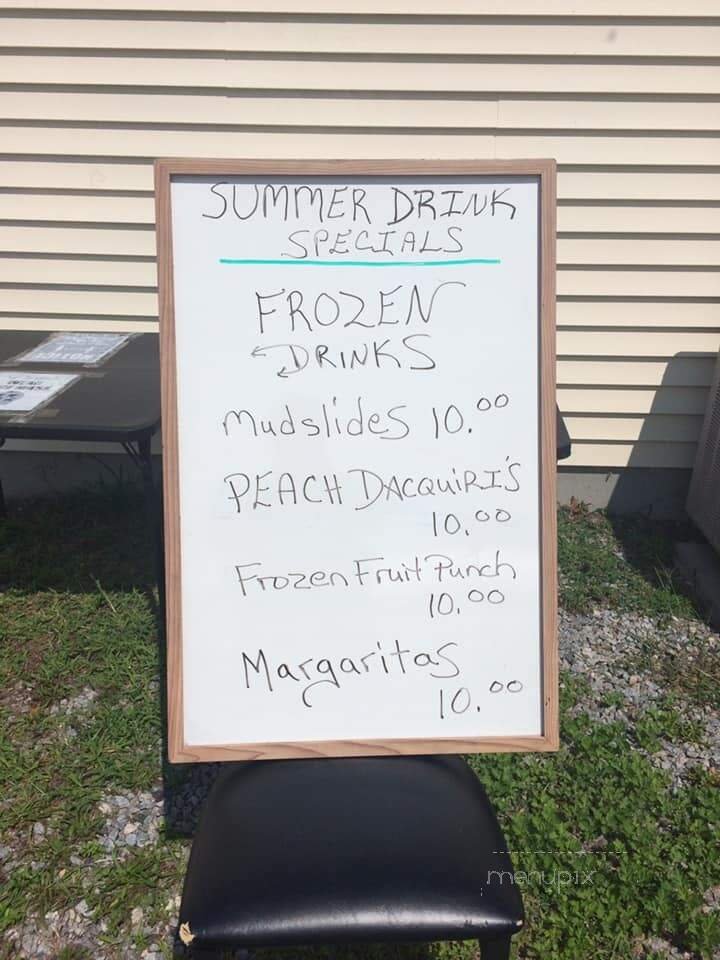 SUMMER DRINK
SPECIALS
FROZEN
DRINKS
Mudslides 10.00
PEACH DACQUIRI'S
10.00
Frozen Fruit Punch
10.00
Margaritas
10.00
menupix